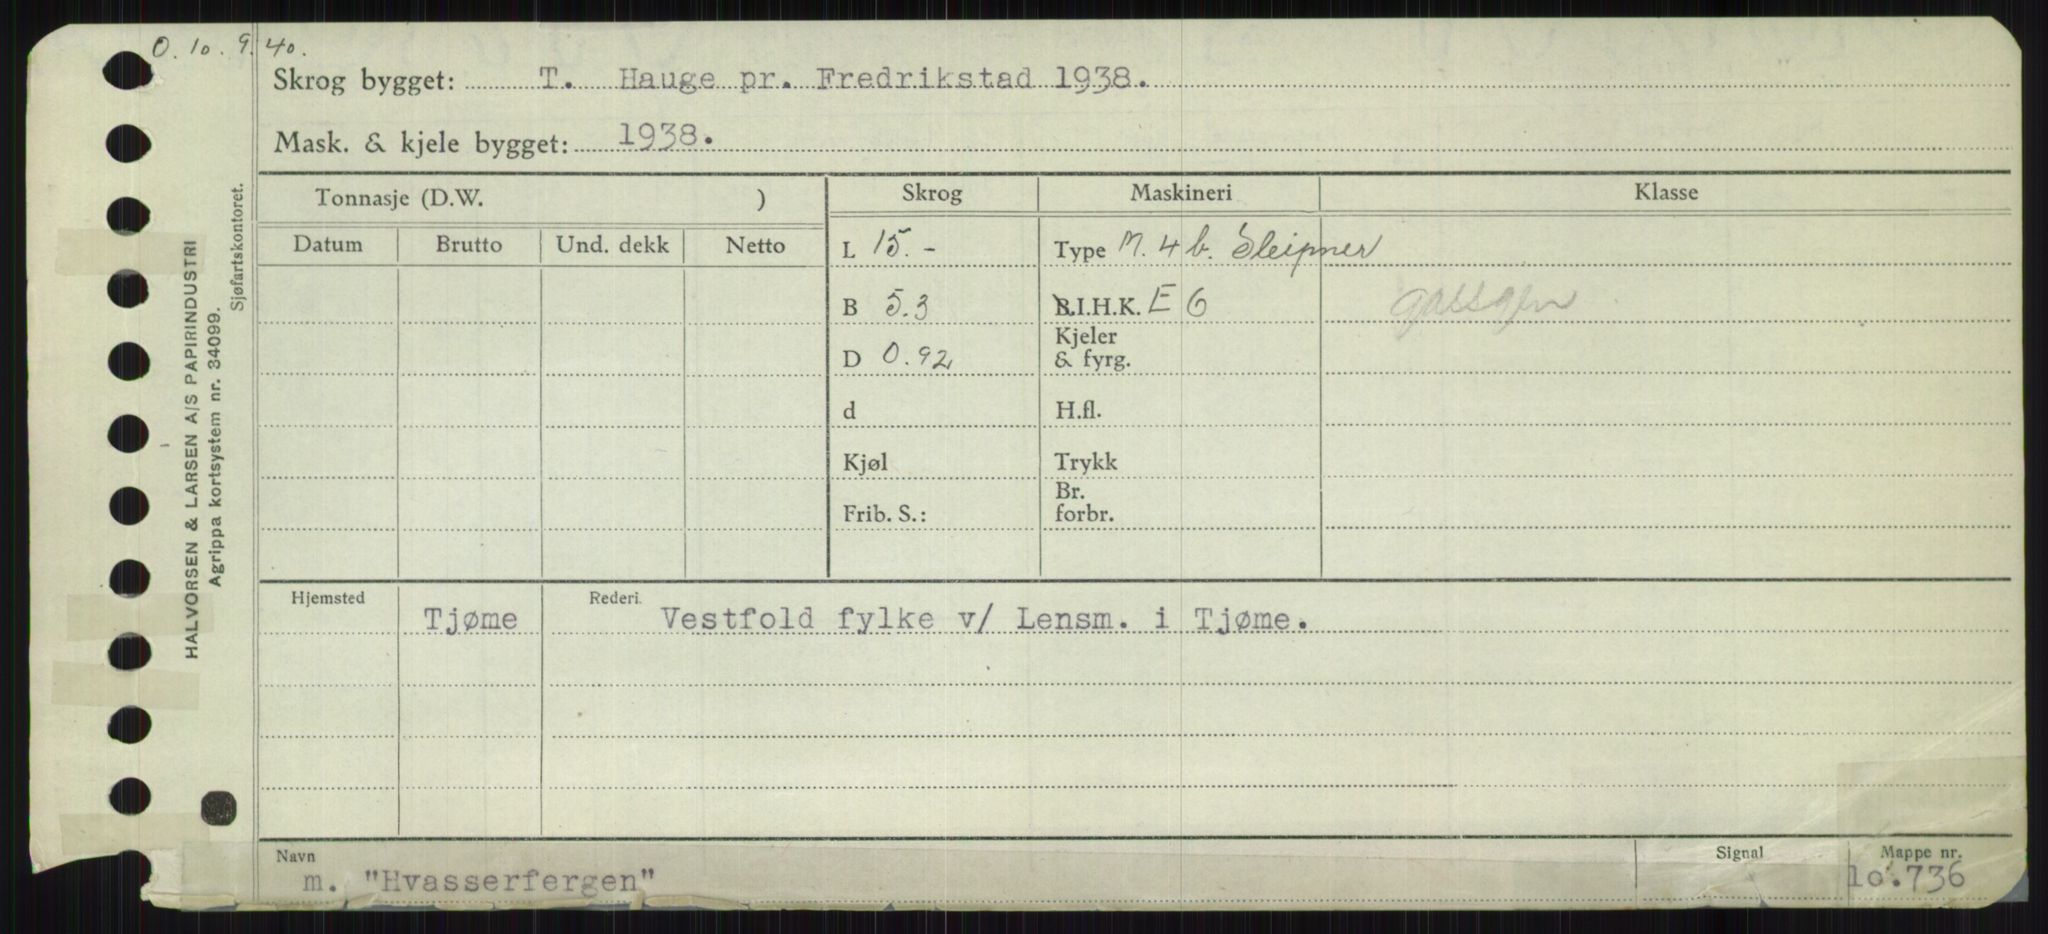 O. 10. 9. 40.
Skrog bygget: T. Hauge pr. Fredrikstad 1938.
Mask. & kjele bygget: 1938.
Tonnasje (D.W. ) Skrog Maskineri Klasse
Datum Brutto Und. dekk Netto
L 15.- Type M. 4 b. Sleipner
B 5.3 B.I.H.K. E 6 gassgen
D 0.92 Kjeler & fyrg.
d H.fl.
Kjøl Trykk
Frib. S.: Br. forbr.
Hjemsted Tjøme Rederi. Vestfold fylke v/ Lensm. i Tjøme.
Navn Signal Mappe nr.
m. "Hvasserfergen" 10.736
HALVORSEN & LARSEN A/S PAPIRINDUSTRI
Agrippa kortsystem nr. 34099.
Sjøfartskontoret.